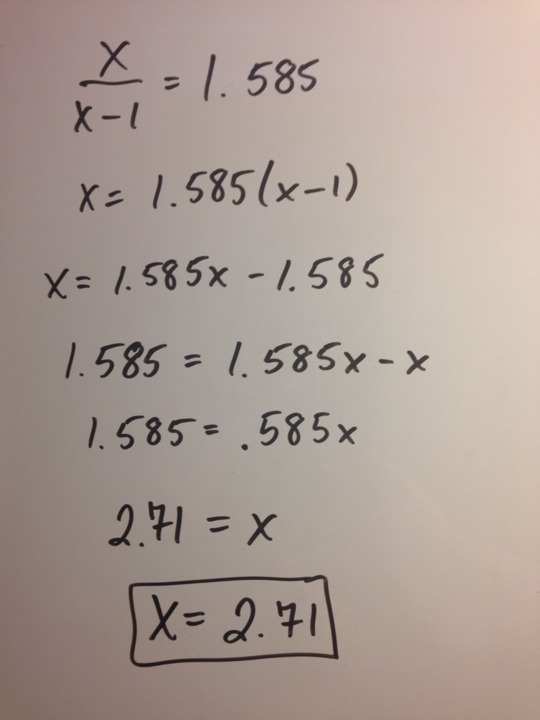 x/(x-1) = 1.585
x = 1.585(x-1)
x = 1.585x - 1.585
1.585 = 1.585x - x
1.585 = .585x
2.71 = x
x = 2.71